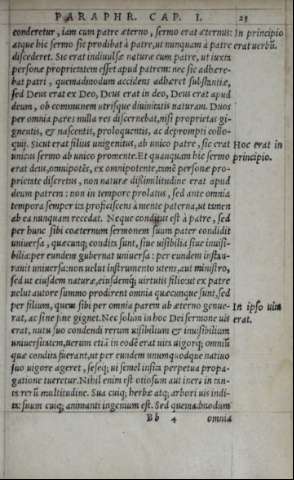 PARAPHR. CAP. I. 23
conderetur, iam cum patre æterno, sermo erat æternus: In principio
atque hic sermo sic prodibat à patre, ut nunquam à patre erat uerbū.
discederet. Sic erat indiuulsæ naturæ cum patre, ut iuxta
personæ proprietatem esset apud patrem: nec sic adhære-
bat patri, quemadmodum accidens adhæret substantiæ,
sed Deus erat ex Deo, Deus erat in deo, Deus erat apud
deum, ob communem utrisque diuinitatis naturam. Duos
per omnia pares nulla res discernebat, nisi proprietas gi-
gnentis, & nascentis, proloquentis, ac deprompti collo-
quij. Sicut erat filius unigenitus, ab unico patre, sic erat Hoc erat in
unicus sermo ab unico promente. Et quanquam hic sermo principio.
erat deus, omnipotēs, ex omnipotente, tamē personæ pro-
prietate discretus, non naturæ dissimilitudine erat apud
deum patrem: non in tempore prolatus, sed ante omnia
tempora semper ita proficiscens à mente paterna, ut tamen
ab ea nunquam recedat. Neque conditus est à patre, sed
per hunc sibi coæternum sermonem suum pater condidit
uniuersa, quæcunq; condita sunt, siue uisibilia siue inuisi-
bilia: per eundem gubernat uniuersa: per eundem instau-
rauit uniuersa: non uelut instrumento utens, aut ministro,
sed ut eiusdem naturæ, eiusdemq; uirtutis filio: ut ex patre
uelut autore summo prodirent omnia quæcunque sunt, sed
per filium, quem sibi per omnia parem ab æterno genue- In ipso uita
rat, ac sine fine gignet. Nec solum in hoc Dei sermone uis erat.
erat, nutu suo condendi rerum uisibilium & inuisibilium
uniuersitatem, uerum etiā in eodē erat uita uigorq; omniū
quæ condita fuerant, ut per eundem unumquodque natiuo
suo uigore ageret, seseq; ut semel insita perpetua propa-
gatione tueretur. Nihil enim est otiosum aut iners in tan-
ta rerū multitudine. Sua cuiq; herbæ atq; arbori uis indi-
ta: suum cuiq; animanti ingenium est. Sed quemadmodum
Bb 4 omnia